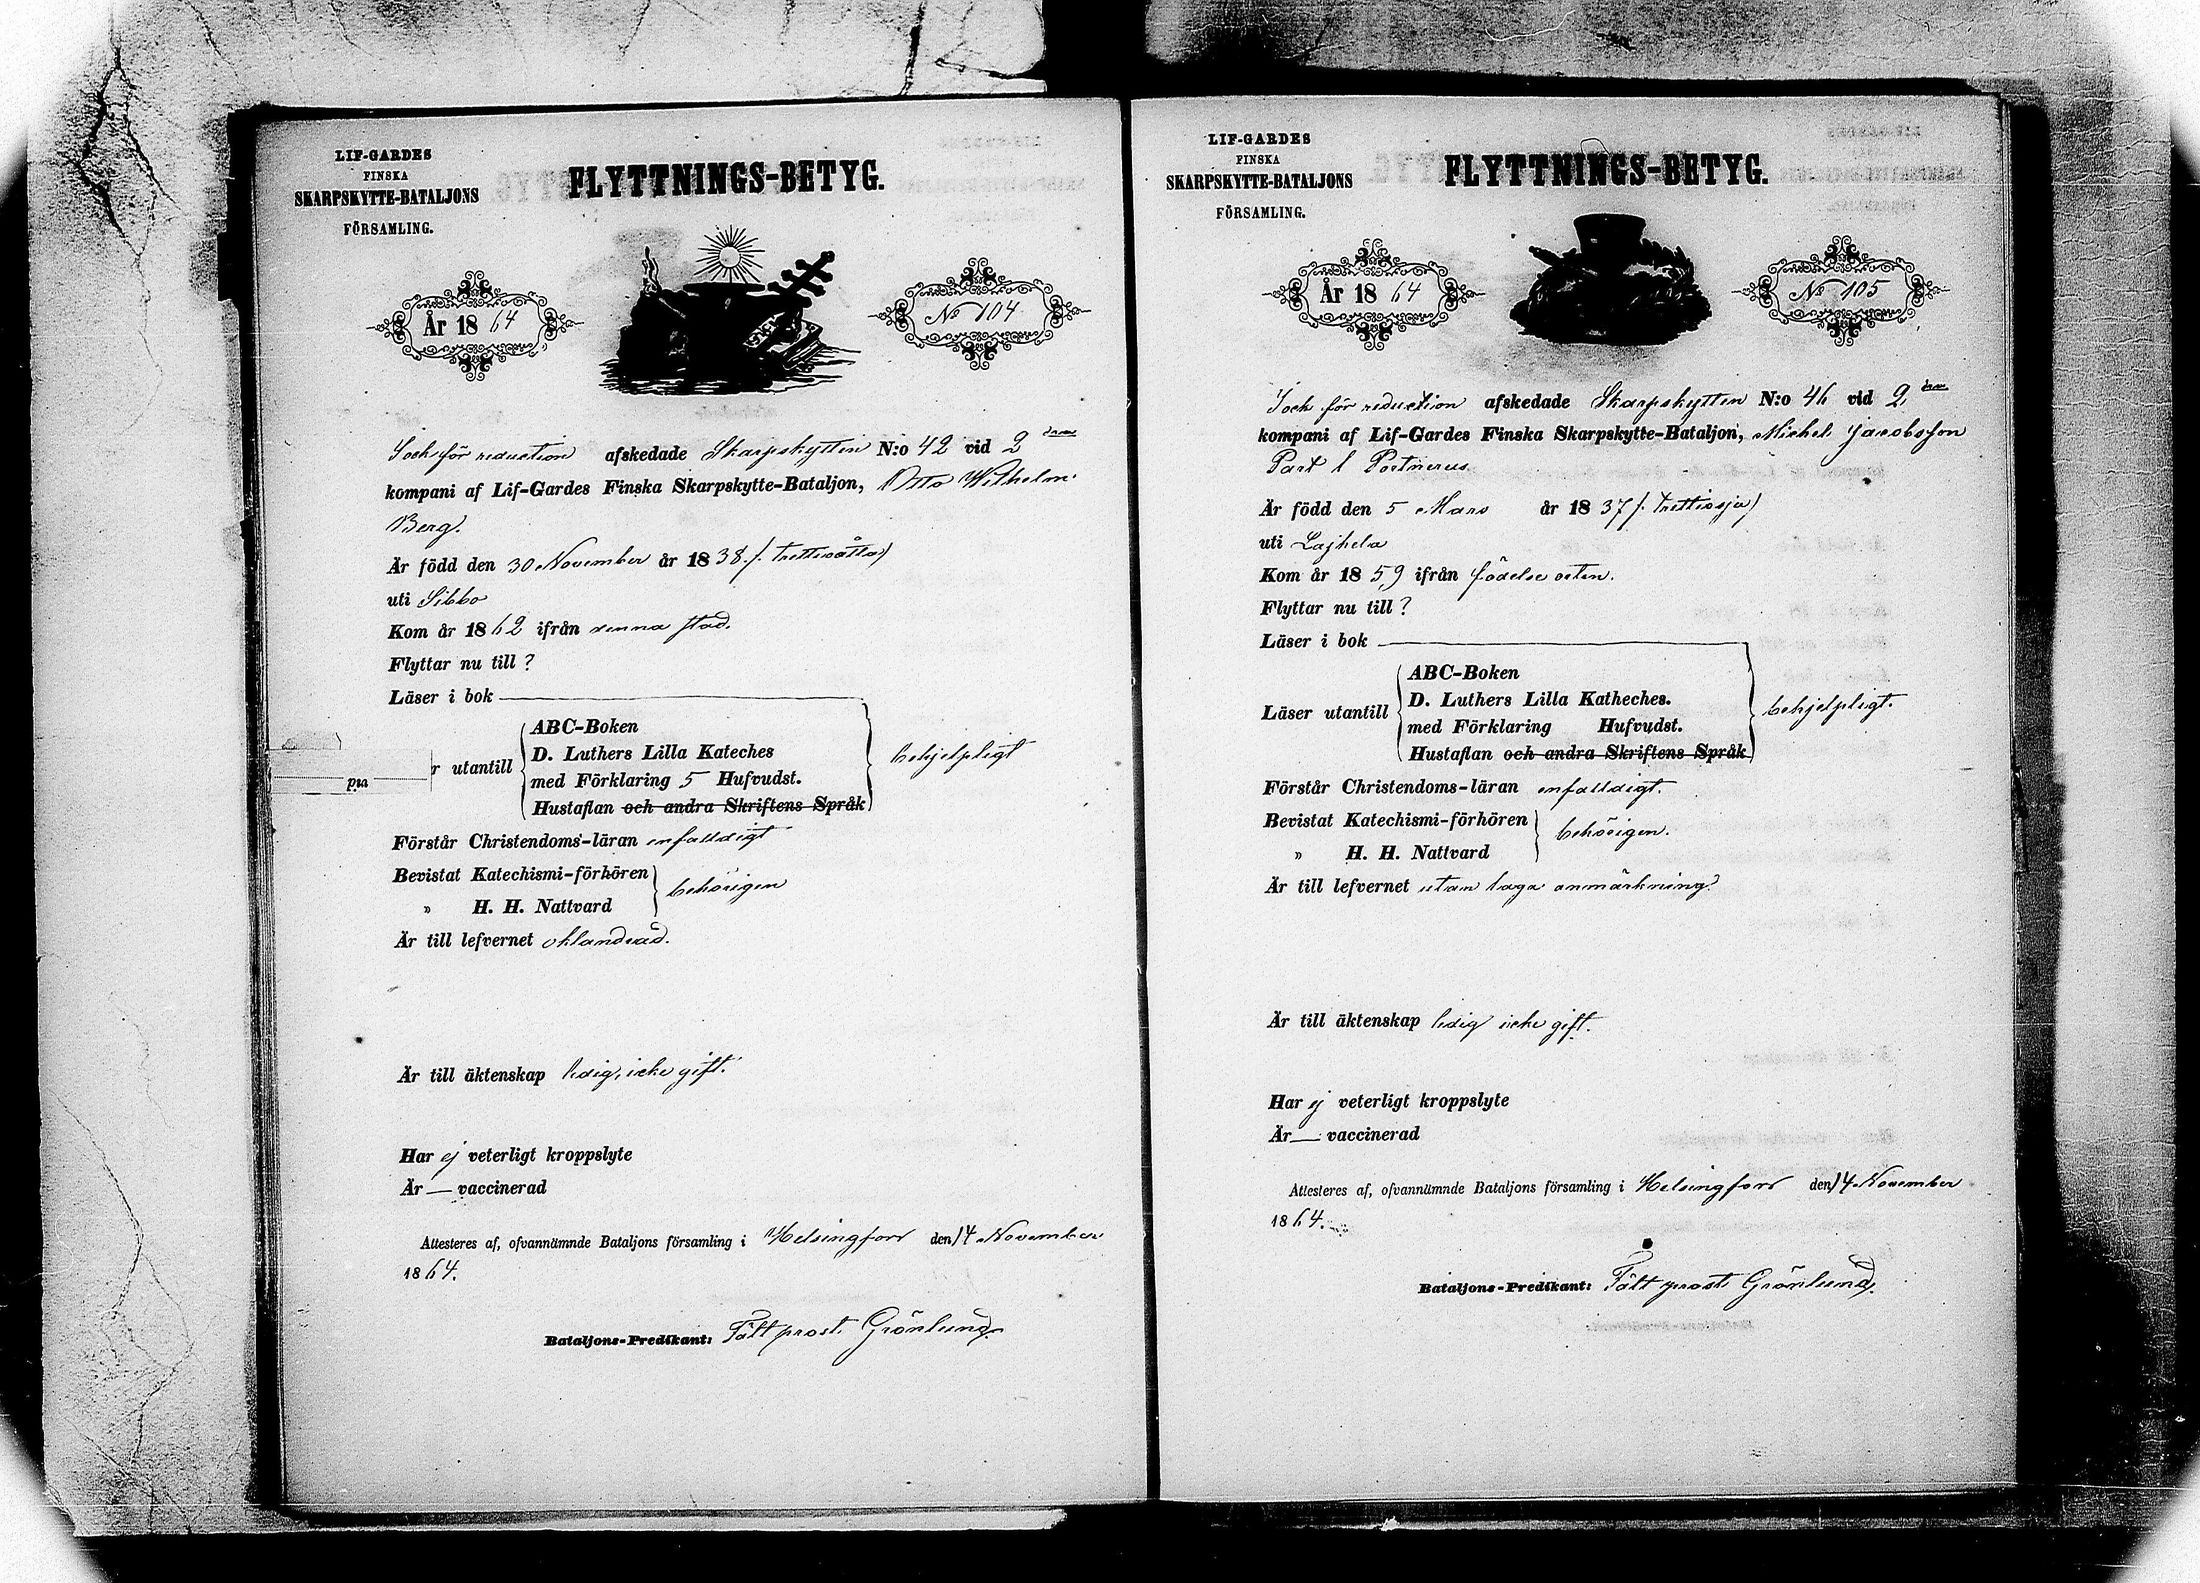 LIF-GARDES
FINSKA
SKARPSKYTTE-BATALJONS
FÖRSAMLING.
FLYTTNINGS-BETYG.
År 18 64
No 104
och för reduction afskedade Skarpskytten N:o 42 vid 2
kompani af Lif-Gardes Finska Skarpskytte-Bataljon, Otto Wilhelm
Berg.
Är född den 30 November år 1838. /. trettioåtta)
uti Sibbo
Kom år 1862 ifrån denna stad.
Flyttar nu till ?
Läser i bok
r utantill
pia
ABC-Boken
D. Luthers Lilla Kateches
med Förklaring 5 Hufvudst.
Hustaflan och andra Skriftens Språk
behjelpligt
Förstår Christendoms-läran enfaldigt
Bevistat Katechismi-förhören
" H. H. Nattvard
behörigen
Är till lefvernet oklandrad.
Är till äktenskap ledig, icke gift.
Har ej veterligt kroppslyte
Är — vaccinerad
Attesteres af, ofvannämnde Bataljons församling i Helsingfors den 14 November
1864.
Bataljons-Predikant: Fältprost Grönlund.
LIF-GARDES
FINSKA
SKARPSKYTTE-BATALJONS
FÖRSAMLING.
FLYTTNINGS-BETYG.
År 18 64
No 105
och för reduction afskedade Skarpskytten N:o 46 vid 2
kompani af Lif-Gardes Finska Skarpskytte-Bataljon, Michel Jacobsson
Part
Är född den 5 Mars år 1837 /. trettiosju)
uti Lajhela
Kom år 1859 ifrån födelse orten.
Flyttar nu till ?
Läser i bok
Läser utantill
ABC-Boken
D. Luthers Lilla Katheches.
med Förklaring Hufvudst.
Hustaflan och andra Skriftens Språk
behjelpligt.
Förstår Christendoms-läran enfaldigt.
Bevistat Katechismi-förhören
" H. H. Nattvard
behörigen.
Är till lefvernet utan laga anmärkning.
Är till äktenskap ledig icke gift.
Har ej veterligt kroppslyte
Är — vaccinerad
Attesteres af, ofvannämnde Bataljons församling i Helsingfors den 14 November
1864.
Bataljons-Predikant: Fältprost Grönlund.